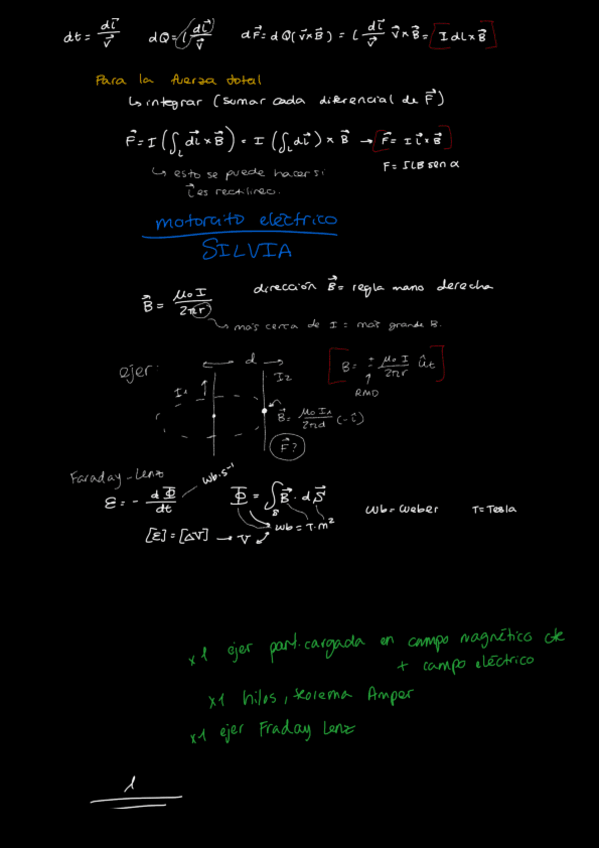 dt = dl⃗/v⃗   dQ = λ(dl⃗/v⃗)   dF⃗ = dQ(v⃗×B⃗) = λ dl⃗/v⃗ v⃗×B⃗ = [I dl×B⃗]
Para la fuerza total
↳ integrar (sumar cada diferencial de F⃗)
F⃗ = I (∫ₗ dl⃗×B⃗) = I (∫ₗ dl⃗) × B⃗ → [F⃗ = I l⃗×B⃗]
F = ILB sen α
↳ esto se puede hacer si
l⃗ es rectilineo.
motorcito eléctrico
SILVIA
B⃗ = μ₀I/2πr   dirección B⃗ = regla mano derecha
↳ más cerca de I : más grande B.
ejer:   d   [B = ± μ₀ I/2πr ût]
I₁ ↑   I₂   ↑ RMD
B⃗ = μ₀ I₁/2πd (−i⃗)
F⃗?
Faraday-Lenz   Wb·s⁻¹
ε = − dΦ/dt   Φ = ∫ₛ B⃗ · dS⃗   Wb = Weber   T = Tesla
Wb = T·m²
[ε] = [ΔV] → V
x1 ejer part. cargada en campo magnético cte
+ campo eléctrico
x1 hilos, teorema Amper
x1 ejer Fraday Lenz